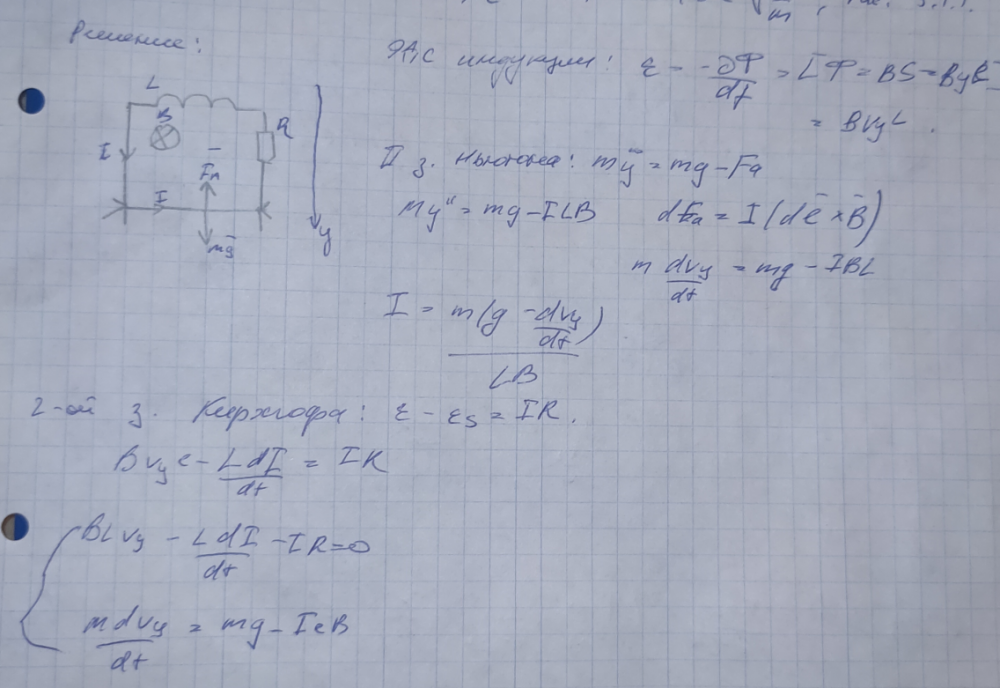 m
Решение:
ЭДС индукции: ε = -∂Φ/dt = [Φ = BS = Byℓ]
= BVyL.
L
B
R
I
Fa
I
mg
y
II з. Ньютона: mÿ = mg - Fa
my" = mg - ILB dFa = I(dℓ × B)
m dVy/dt = mg - IBL
I = m(g - dVy/dt)/LB
2-ой з. Кирхгофа: ε - εs = IR.
BVyℓ - LdI/dt = IR
BLVy - LdI/dt - IR = 0
mdVy/dt = mg - IℓB